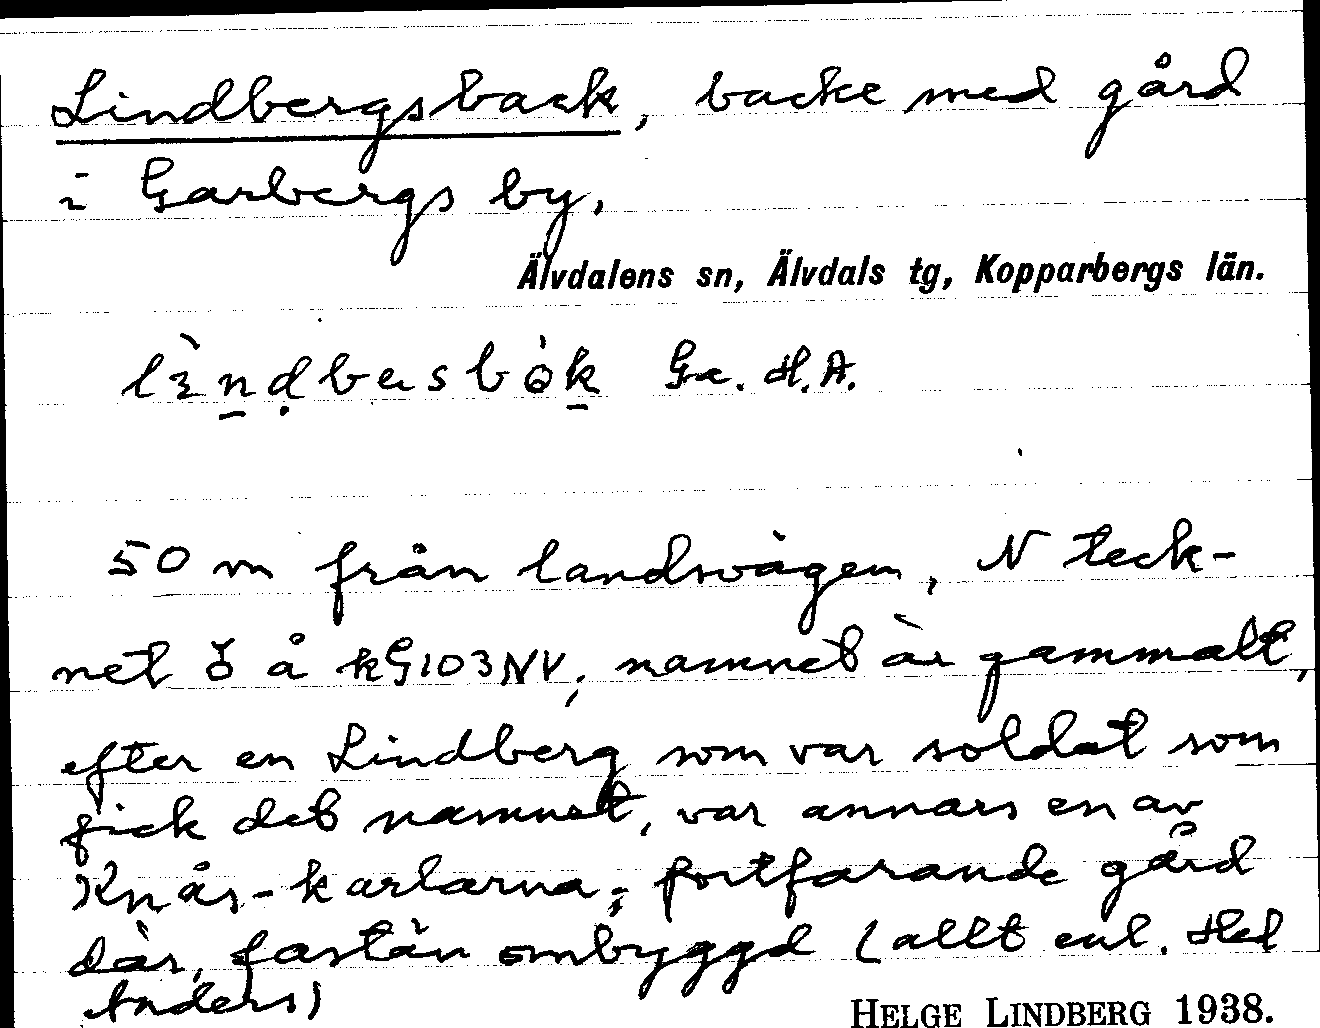 Lindbergsback, backe med gård
i Garbergs by,
Älvdalens sn, Älvdals tg, Kopparbergs län.
Ga. H.A.
50 m från landsvägen, N teck-
net ŏ å kG103NV; namnet är gammalt,
efter en Lindberg som var soldat som
fick det namnet, var annars en av
Knås-karlarna; fortfarande gård
där, fastän ombyggd (allt enl. Hed
Anders)
HELGE LINDBERG 1938.